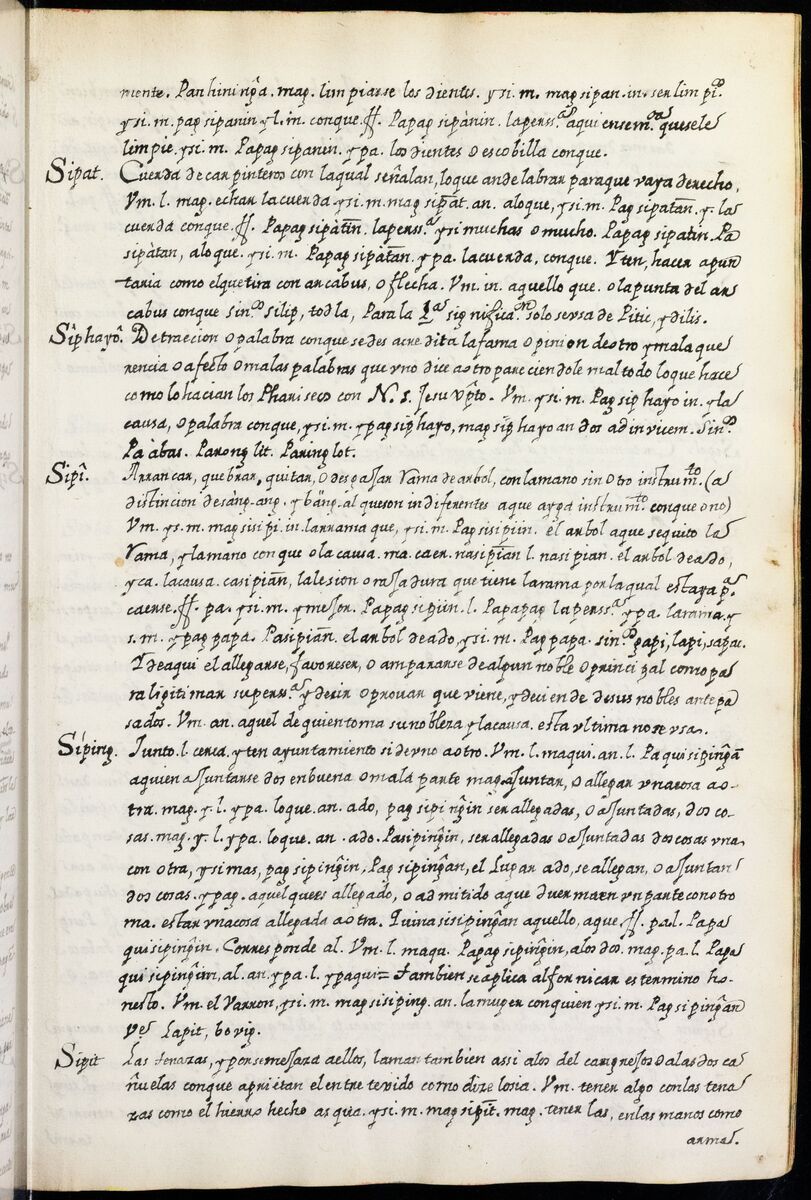 mente. Panhininga. mag. limpiarse los dientes. ysi. m. magsipan. in. ser limpi.os
ysi. m. pagsipanin yl. in. conque.ff. Papagsipànin. la perss.a aqui ensem.o quesele
limpie. ysi. m. Papagsipanin. ypa. los dientes o escobilla conque.
Sipat. Cuerda de carpinteros con laqual señalan, loque ande labrar paraque vaya derecho,
Vm. l. mag. echar lacuerda ysi. m. magsipat. an. aloque, ysi. m. Pagsipatan. y. la
cuerda conque.ff. Papagsipàtin. laperss.a ysi muchas o mucho. Papagsipatin. Pa
sipàtan, aloque. ysi. m. Papagsipàtan. ypa. lacuerda, conque. Yten, hacer apun
taria como elquetira con arcabus, o flecha. Vm. in. aquello que. o lapunta del ar
cabus conque sin.o silip, todla, Para la 1.a significa.on solo se usa de Pitic, ydilis.
Siphayo. Detraccion o palabra conque se desacredita lafama o pinion de otro ymala que
rencia o afecto o malas palabras que uno dice aotro pareciendole mal todo loque hace
como lo hacian los Phariseos con N. S. Jesu xpto. Vm. ysi. m. Pagsiphayo in. yla
causa, o palabra conque, ysi. m. ypagsiphayo, magsiphayoan dos adinvicem. Sin.o
Paàbas. Paronglit. Paringlot.
Sipi. Arrancar, quebrar, quitar, o desgajar rama de arbol, con lamano sin otro instrum.to (a
distincion de sàng-ang. y bàng. al queson indiferentes aque ayga instrum.to conque o no)
Vm. ys. m. magsisipi. in. larrama que, ysi. m. Pagsisipiin. el arbol aque sequito la
rama, ylamano conque o la causa. ma. caer. nasipian l. nasipian. el arbol deado,
yca. la causa. casipian, la lesion o rajadura que tiene larama porlaqual esta ya p.a
caerse.ff. pa. ysi. m. ymejor. Papagsipiin. l. Papapag laperss.a ypa. larama. y
s. m. ypagpapa. Pasipian. el arbol deado, ysi. m. Pagpapa. sin.o papi, lapi, sapac.
Yde aqui el allegarse, favoreser, o ampararse dealgun noble o principal como pa
ra ligitimar superss.a ydecir o provar que viene, ydeciende desus nobles antepa
sados. Vm. an. aquel de quien toma su nobleza ylacausa. esta ultima no se usa.
Siping. Junto. l. cerca. yten ayuntamiento si de uno aotro. Vm. l. maqui. an. l. Paquisipingan
aquien ajuntanse dos enbuena o mala parte mag. ajuntar, o allegar una cosa ao-
tra. mag. y. l. ypa. loque. an. ado, pagsipingin ser allegadas, o ajuntadas, dos co-
sas. mag. y. l. ypa. loque. an. ado. Pasipingin, ser allegadas o ajuntadas dos cosas una
con otra, ysi mas, pagsipingin, Pagsipingan, el Lugar ado, se allegan, o ajuntan
dos cosas. ypag. aquel que es allegado, o admitido aque duerma en un parte con otro
ma. estar una cosa allegada a otra. Quinasisipingan aquello, aque ff. pa. l. Papa
quisipingin. Corresponde al. Vm. l. maqu. Papagsipingin, alos dos. mag. pa. l. Papa
quisipingin, al. an. ypa. l. ypaqui= tambien se aplica al fornicar es termino ho-
nesto. Vm. el Varron, ysi. m. magsisiping. an. la muger con quien ysi. m. Pagsipingan
Ve. Lapit, bovig.
Sipit Las tenazas, y por semejaza aellos, laman tambien assi alos del cangrejo o alas dos ca
ñuelas conque aprietan el entre texido como dize losia. Vm. tener algo con las tena
zas como el hierro hecho asqua. ysi. m. magsipit. mag. tener las, en las manos como
armas.